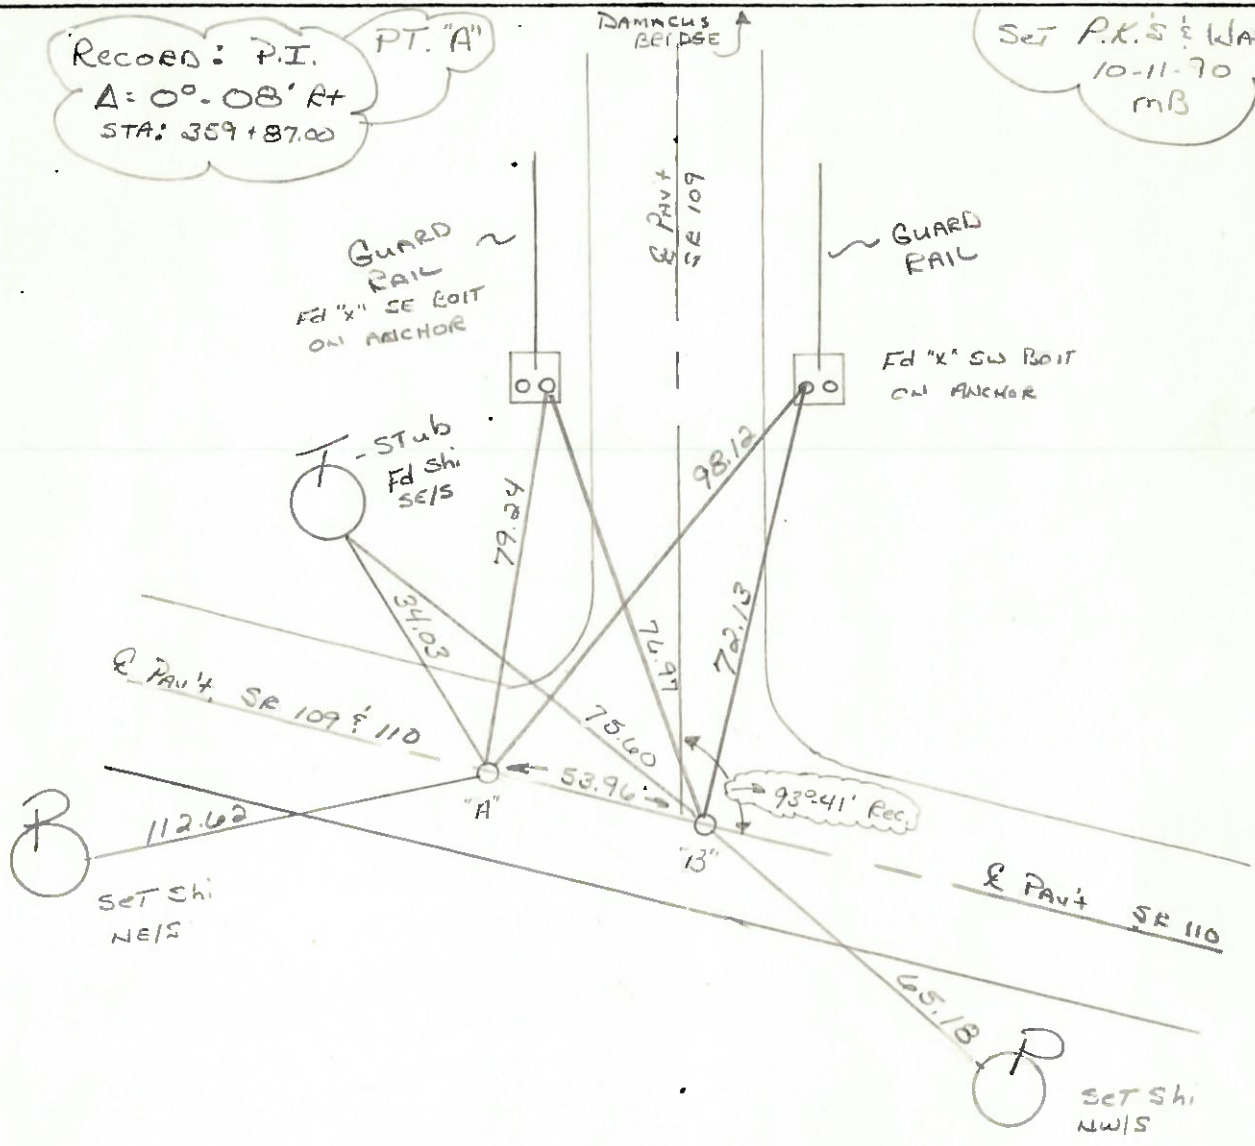 RECORD: P.I.
Δ= 0°-08' Rt
STA: 359+87.00
PT. "A"
DAMACUS
BRIDGE
SET P.K.'s & WA
10-11-90
mB
℄ PAV't
SR 109
GUARD
RAIL
Fd "x" SE BOIT
ON ANCHOR
GUARD
RAIL
Fd "x" SW BOIT
ON ANCHOR
T
-STub
Fd Shi
SE/S
79.24
98.12
34.03
76.97
72.13
75.60
℄ PAV't SR 109 & 110
53.96
93°-41' Rec.
"A"
"B"
P
112.62
SET Shi
NE/S
℄ PAV't SR 110
65.18
P
SET Shi
NW/S